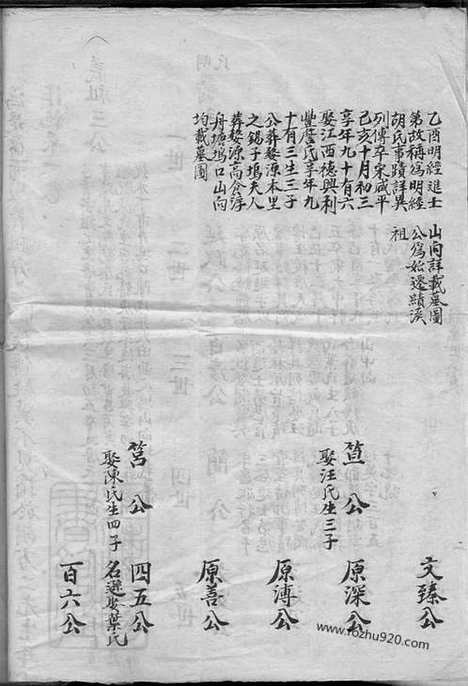 乙酉明經進士
第故稱為明經
胡氏事蹟詳異
列傳卒宋咸平
己亥十月初三
享年九十有六
娶江西德興利
豐詹氏享年九
十有三生三子
公葬婺源本里
之錫子塢夫人
葬婺源高倉淳
舟塘塢口山向
均載墓圖
山向詳載墓圖
公為始遷蹟溪
祖
文臻公
笪公
娶汪氏生三子
原深公
原溥公
原善公
筥公
娶陳氏生四子
四五公
名選娶葉氏
百六公
www.rozhu920.com